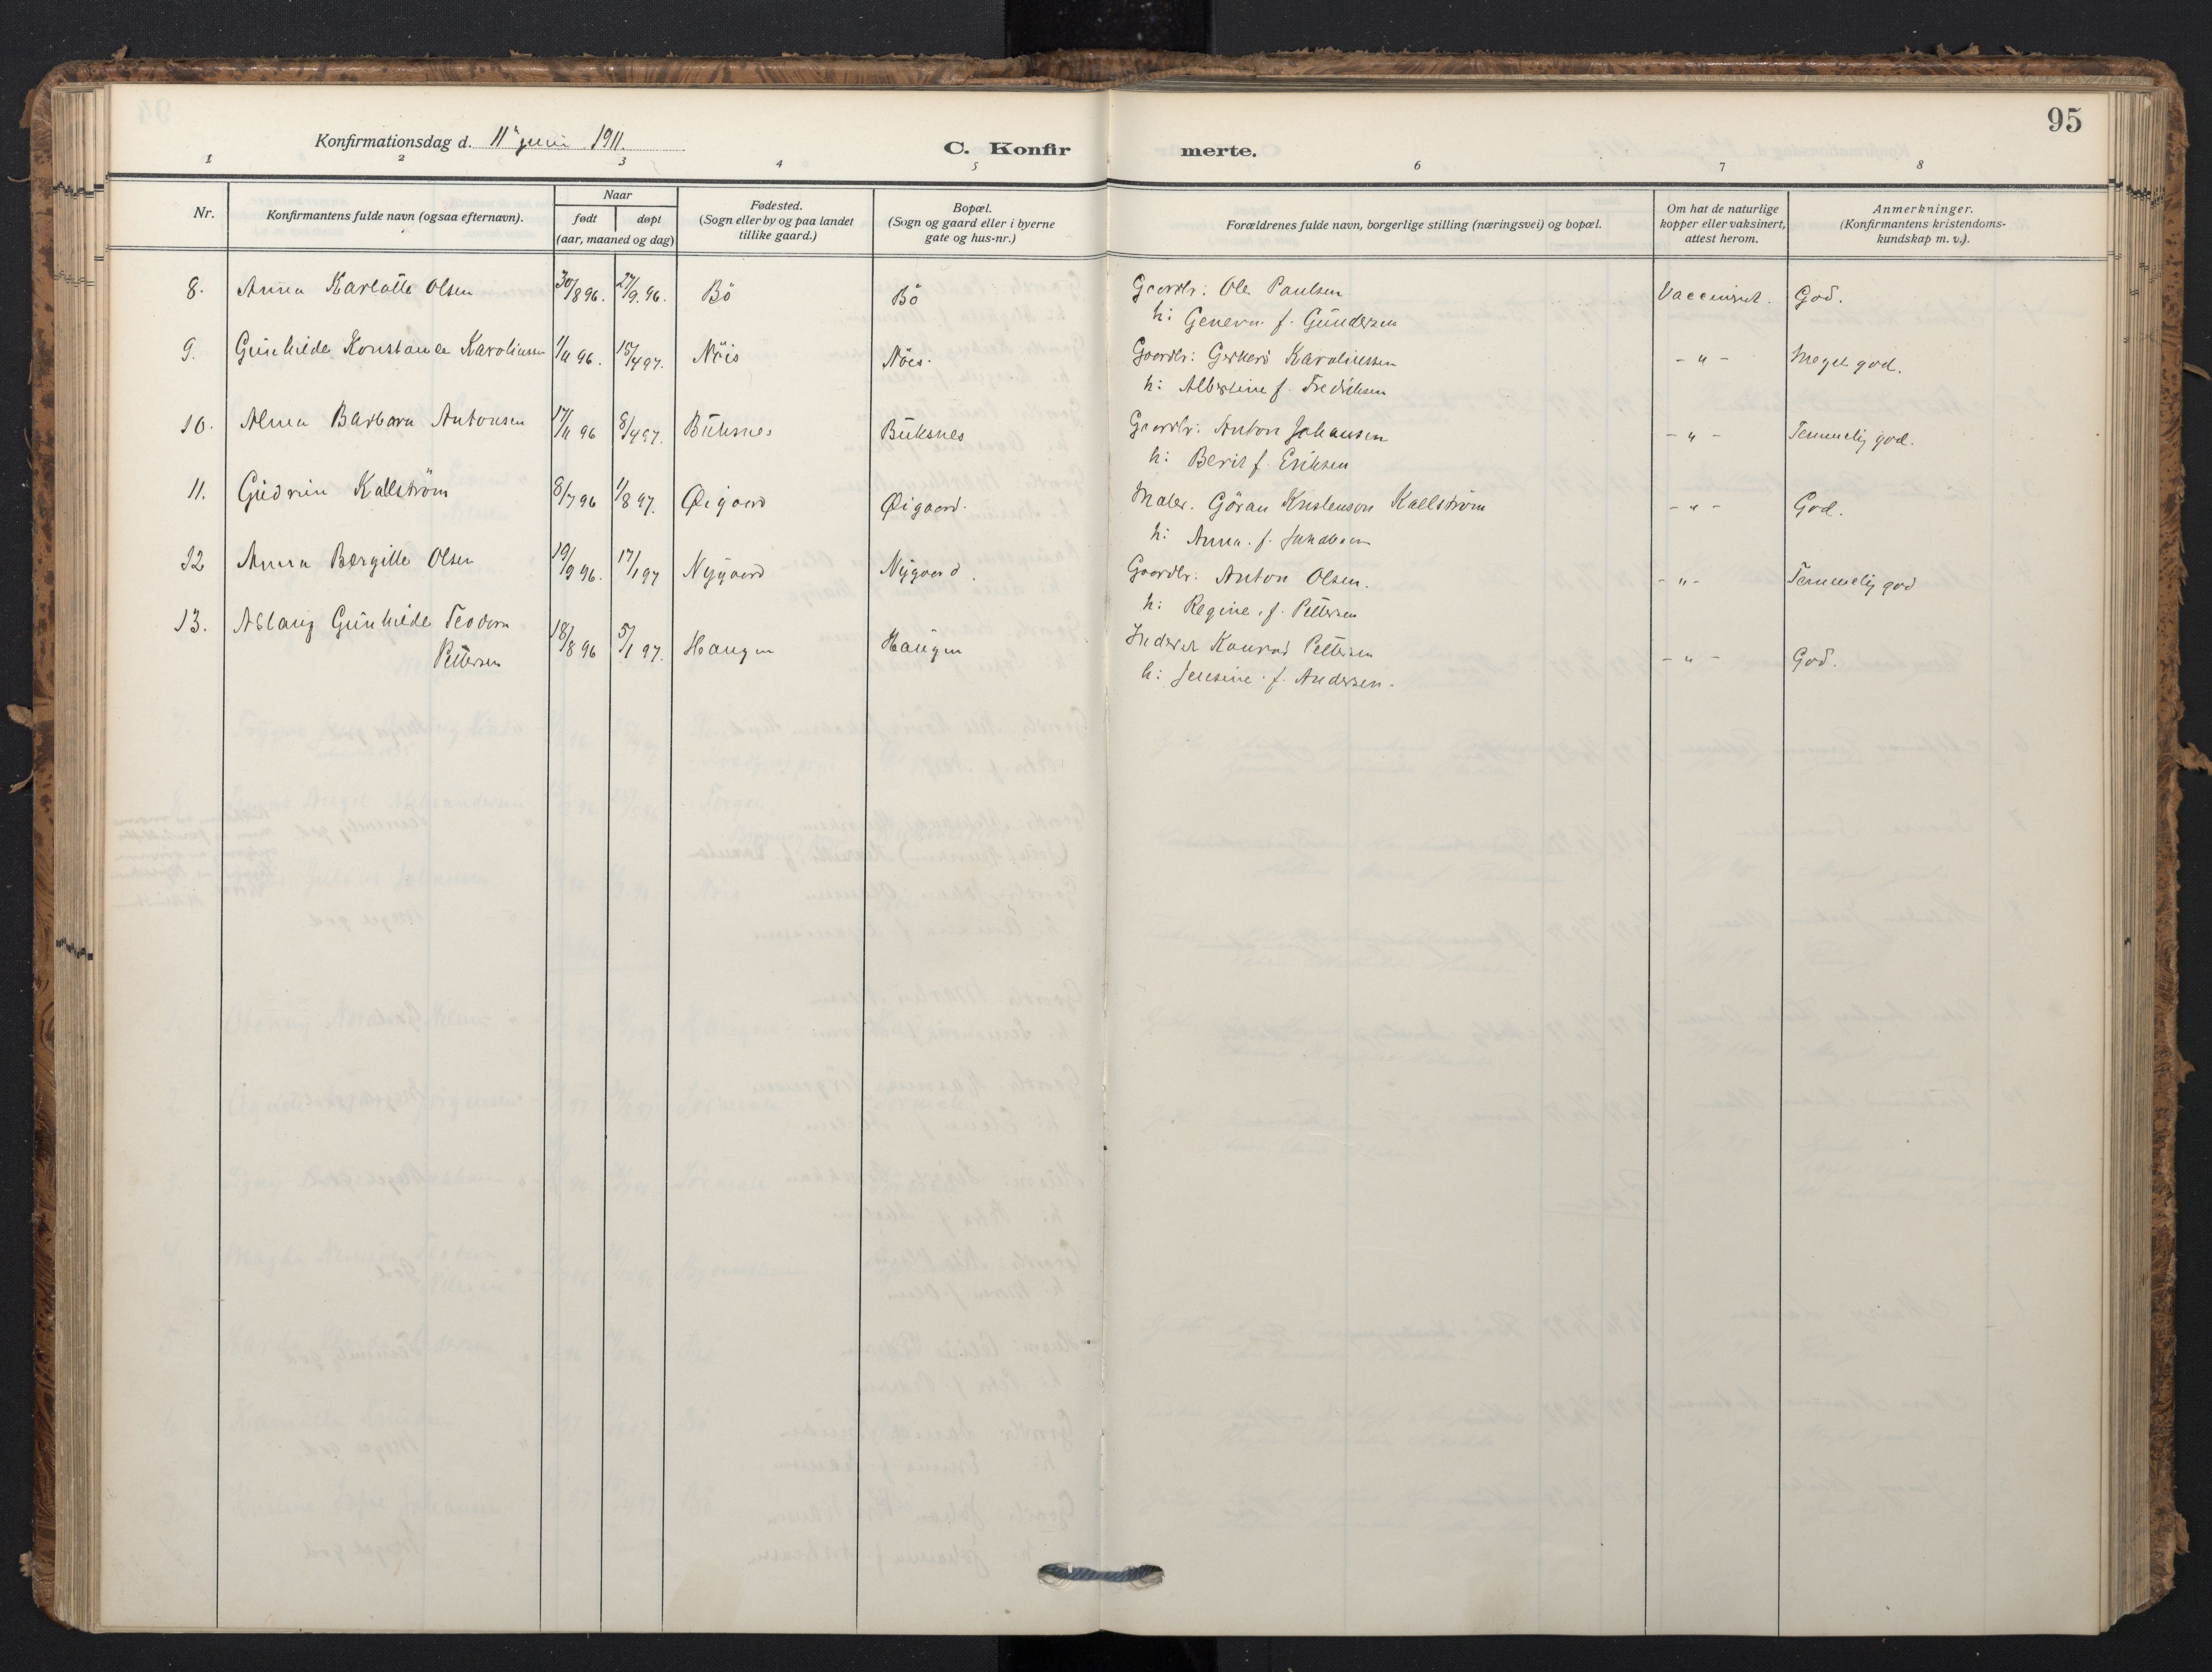 95
Konfirmationsdag d. 11te juni 1911.
C. Konfirmerte.
1 2 3 4 5 6 7 8
Nr.
Konfirmantens fulde navn (ogsaa efternavn).
Naar
født døpt
(aar, maaned og dag)
Fødested.
(Sogn eller by og paa landet
tillike gaard.)
Bopæl.
(Sogn og gaard eller i byerne
gate og hus-nr.)
Forældrenes fulde navn, borgerlige stilling (næringsvei) og bopæl.
Om hat de naturlige
kopper eller vaksinert,
attest herom.
Anmerkninger.
(Konfirmantens kristendoms-
kundskap m. v.).
8. Anna Karlotte Olsen 30/8 96. 27/9. 96. Bö Bö Gaardbr: Ole Paulsen Vaccinert. God.
h: f. Gundersen
9. Gunhilde Konstanse Karoliussen 1/11 96. 15/4 97. Nöis Nöis. Gaardbr: Gerhard Karoliussen - " - Meget god.
h: Albertine f. Fredriksen
10. Alma Barbara Antonsen 17/11 96 8/4 97. Buksnes Buksnes Gaardbr: Anton Johansen - " - Temmelig god.
h: Berit f. Eriksen
11. Gudrun Kallström 8/7 96 1/8 97. Øigaard Øigaard. Maler. Göran Kristenson Kallström - " - God.
h: Anna. f.
12 Anna Bergitte Olsen 19/9 96. 17/1 97 Nygaard Nygaard. Gaardbr: Anton Olsen. - " - Temmelig god
h: Regine. f. Pettersen
13. Aslaug Gunhilde Teodora
Pettersen 18/8 96 5/1 97. Haugen Haugen Inderst Konrad Pettersen - " - God.
h: Jensine f. Andersen.